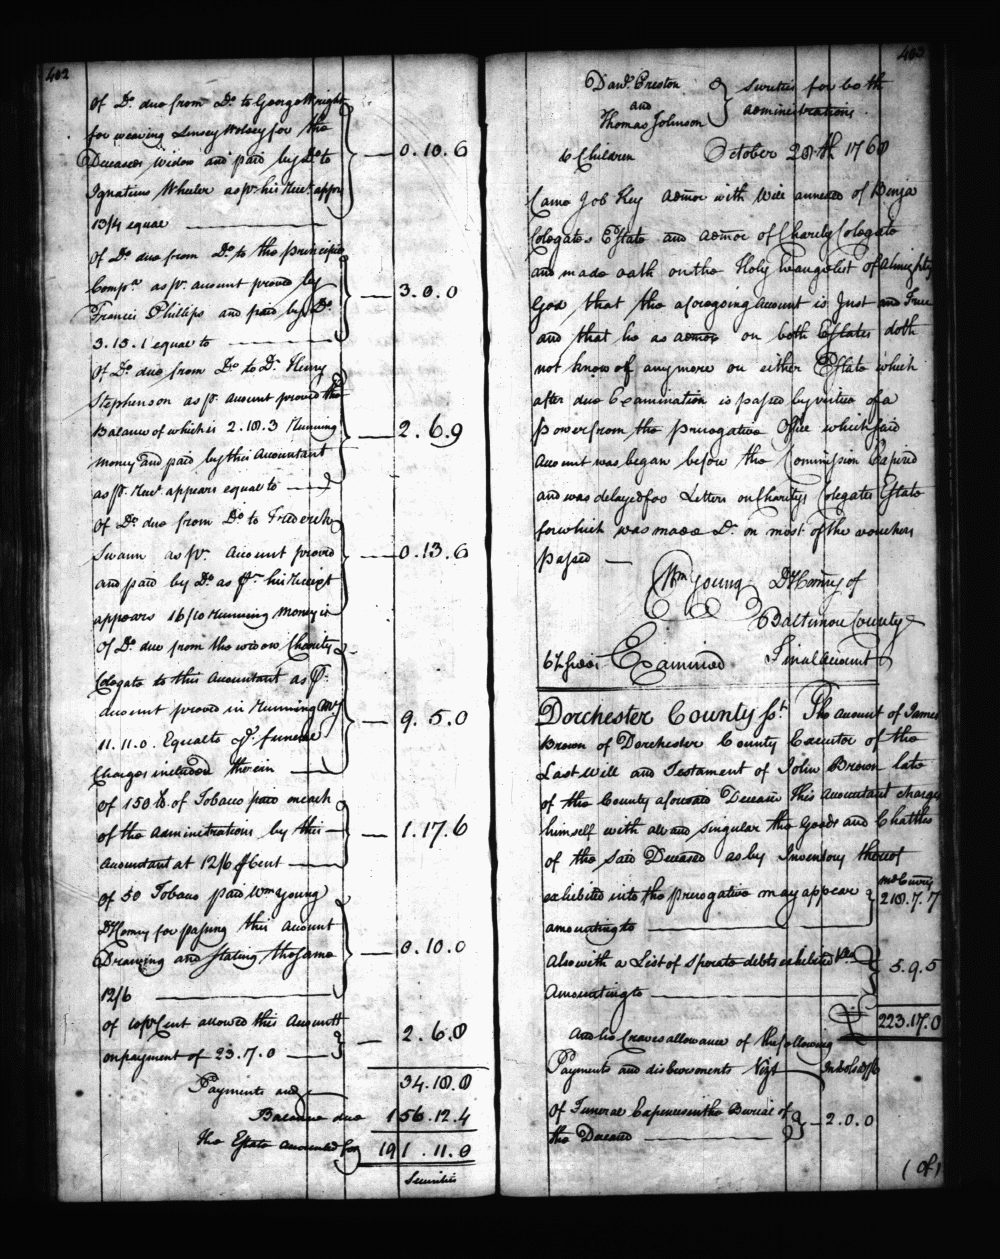 402
Of Do. due from Do. to George Wright
for weaving Linsey Wolsey for the
Deceaseds Widow and paid by Do. to — 0.10.6
Ignatius Wheeler as pr. his Rect. appr.
13/4 equal
Of Do. due from Do. to the principio
Compa. as pr. account proved by — 3.0.0
Francis Phillips and paid by Do.
3.15.1 equal to
Of Do. due from Do. to Dr. Henry
Stephenson as pr. account proved the
Balance of which is 2.18.3 Running — 2.6.9
money and paid by this Accountant
as pr. Rect. appears equal to
Of Do. due from Do. to Frederick
Swann as pr. Account proved — 0.13.6
and paid by Do. as pr. his Receipt
appears 16/10 Running Money is
Of Do. due from the widow Charity
Colegate to this Accountant as pr.
Account proved in Running My — 9.5.0
11.11.0. Equal to funeral
Charges included therein
Of 150 lb. of Tobacco paid on each
of the Administrations by this — 1.17.6
Accountant at 12/6 pCent
Of 50 Tobacco paid Wm. Young
DyComry for passing this Account
Drawing and stating the same — 0.10.0
12/6
Of 10 pr Cent allowed this Accountt — 2.6.8
on payment of 23.7.0
Payments and 34.18.8
Balance due 156.12.4
the Estate accounted for 191.11.0
Securities
403
Danl. Preston
and
Thomas Johnson
} Sureties for both
administrations
6 Children October 28th 1768
Came Job Key Admor with Will annexed of Benja
Colegates Estate and admor of Charity Colegate
and made oath on the Holy Evangelist of Almighty
God that the aforegoing Account is Just and True
and that he as admor on both Estates doth
not know of any more on either Estate which
after due Examination is passed by virtue of a
Power from the prerogative Office which said
Account was began before the Commission Expired
and was delayed for Letters on Charitys Colegates Estate
for which was made Dr. on most of the vouchers
passed
Wm Young DyComry of
Baltimore County
Examined Final Account
Dorchester County sst. The account of James
Brown of Dorchester County Executor of the
Last will and Testament of John Brown late
of the County aforesaid Deceased This Accountant charges
himself with all and singular the Goods and Chattles
of the said Deceased as by Inventory thereof
exhibited into the prerogative may appear 218.7.7
amounting to
Also with a List of Sperate debts exhibited 5.9.5
Amounting to
223.17.0
And he Craves allowance of the following
Payments and disbursments Vizt
Of Funeral Expences in the Burial of — 2.0.0
the Deceased
(Of)